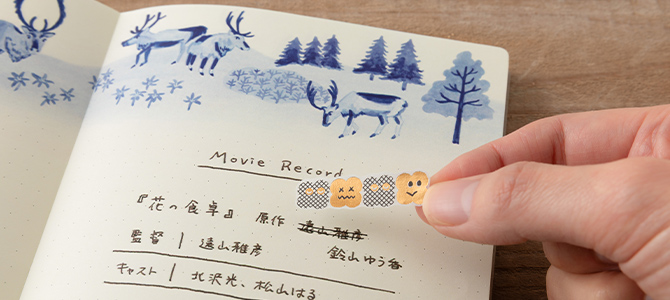 Movie Record
『花の食卓』 原作 遠山雅彦
鈴山ゆう香
監督 | 遠山雅彦
キャスト | 北沢光、松山はる